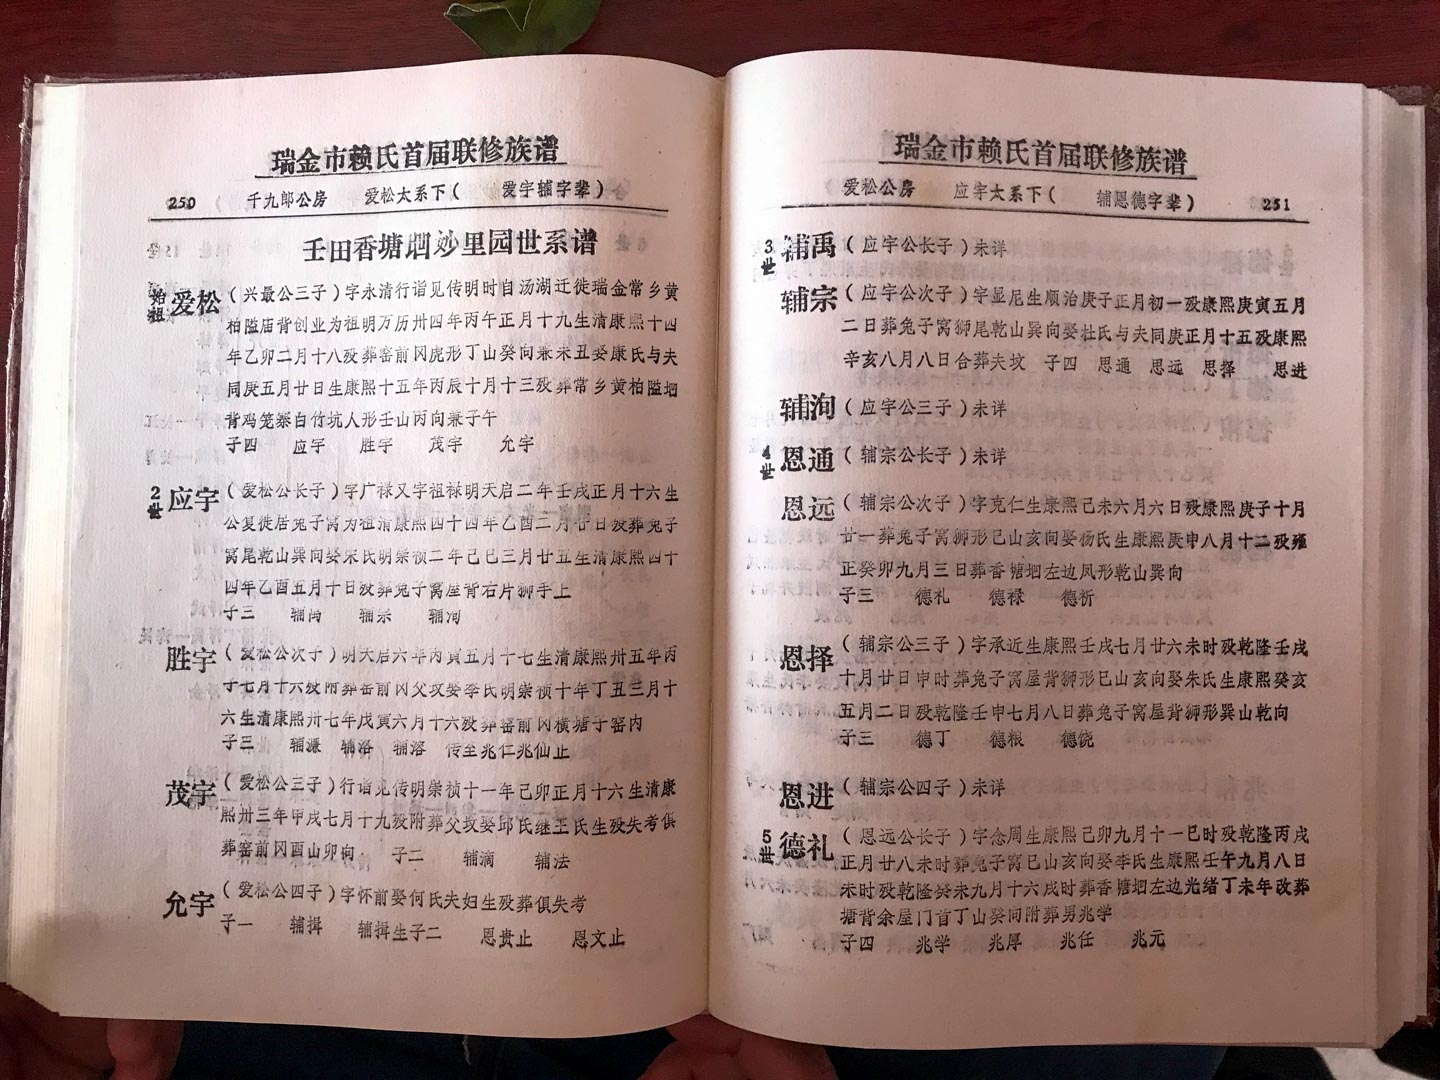 瑞金市赖氏首届联修族谱
250 千九郎公房 爱松太系下( 爱宇辅字辈)
壬田香塘垇妙里园世系谱
始祖 爱松 (兴最公三子)字永清行谐见传明时自汤湖迁徙瑞金常乡黄
柏隘庙背创业为祖明万历卅四年丙午正月十九生清康熙十四
年乙卯二月十八殁葬窑前冈虎形丁山癸向兼未丑娶康氏与夫
同庚五月廿日生康熙十五年丙辰十月十三殁葬常乡黄柏隘垇
背鸡笼寨白竹坑人形壬山丙向兼子午
子四 应宇 胜宇 茂宇 允宇
2世 应宇 (爱松公长子)字广禄又字祖禄明天启二年壬戌正月十六生
公复徙居兔子窝为祖清康熙四十四年乙酉二月子日殁葬兔子
窝尾乾山巽向娶宋氏明崇祯二年己巳三月廿五生清康熙四十
四年乙酉五月十日殁葬兔子窝屋背右片狮手上
子三 辅禹 辅宗 辅洵
胜宇 (爱松公次子)明天启六年丙寅五月十七生清康熙卅五年丙
子七月十六殁附葬窑前冈父坟娶李氏明崇祯十年丁丑三月十
六生清康熙卅七年戊寅六月十六殁葬窑前冈横塘子窑内
子三 辅濂 辅洛 辅溶 传至兆仁兆仙止
茂宇 (爱松公三子)行谐见传明崇祯十一年己卯正月十六生清康
熙卅三年甲戌七月十九殁附葬父坟娶邱氏继王氏生殁失考俱
葬窑前冈酉山卯向 子二 辅滴 辅法
允宇 (爱松公四子)字怀前娶何氏夫妇生殁葬俱失考
子一 辅揖 辅揖生子二 恩贵止 恩文止
瑞金市赖氏首届联修族谱
爱松公房 应宇太系下( 辅恩德字辈) 251
3世 辅禹 (应宇公长子)未详
辅宗 (应宇公次子)字显尼生顺治庚子正月初一殁康熙庚寅五月
二日葬兔子窝狮尾乾山巽向娶杜氏与夫同庚正月十五殁康熙
辛亥八月八日合葬夫坟 子四 恩通 恩远 恩择 恩进
辅洵 (应宇公三子)未详
4世 恩通 (辅宗公长子)未详
恩远 (辅宗公次子)字克仁生康熙己未六月六日殁康熙庚子十月
廿一葬兔子窝狮形巳山亥向娶杨氏生康熙庚申八月十二殁雍
正癸卯九月三日葬香塘垇左边凤形乾山巽向
子三 德礼 德禄 德祈
恩择 (辅宗公三子)字承近生康熙壬戌七月廿六未时殁乾隆壬戌
十月廿日申时葬兔子窝屋背狮形巳山亥向娶朱氏生康熙癸亥
五月二日殁乾隆壬申七月八日葬兔子窝屋背狮形巽山乾向
子三 德丁 德粮 德饶
恩进 (辅宗公四子)未详
5世 德礼 (恩远公长子)字念周生康熙己卯九月十一巳时殁乾隆丙戌
正月廿八未时葬兔子窝巳山亥向娶李氏生康熙壬午九月八日
未时殁乾隆癸未九月十六戌时葬香塘垇左边光绪丁未年改葬
塘背余屋门首丁山癸向附葬男兆学
子四 兆学 兆厚 兆任 兆元